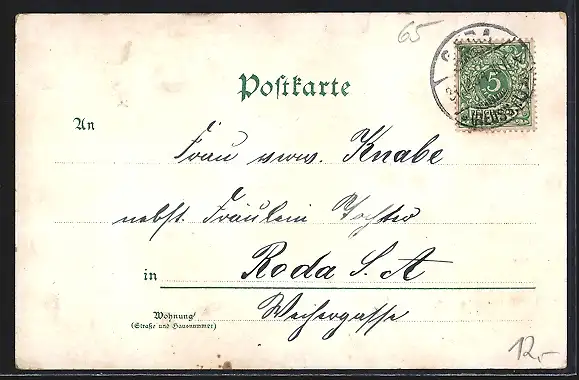 65
GERA
5
(REUSS)
Postkarte
An
Frau verw. Knabe
nebst. Fräulein Tochter
in Roda S. A
Weihergasse
Wohnung
(Straße und Hausnummer)
12,-